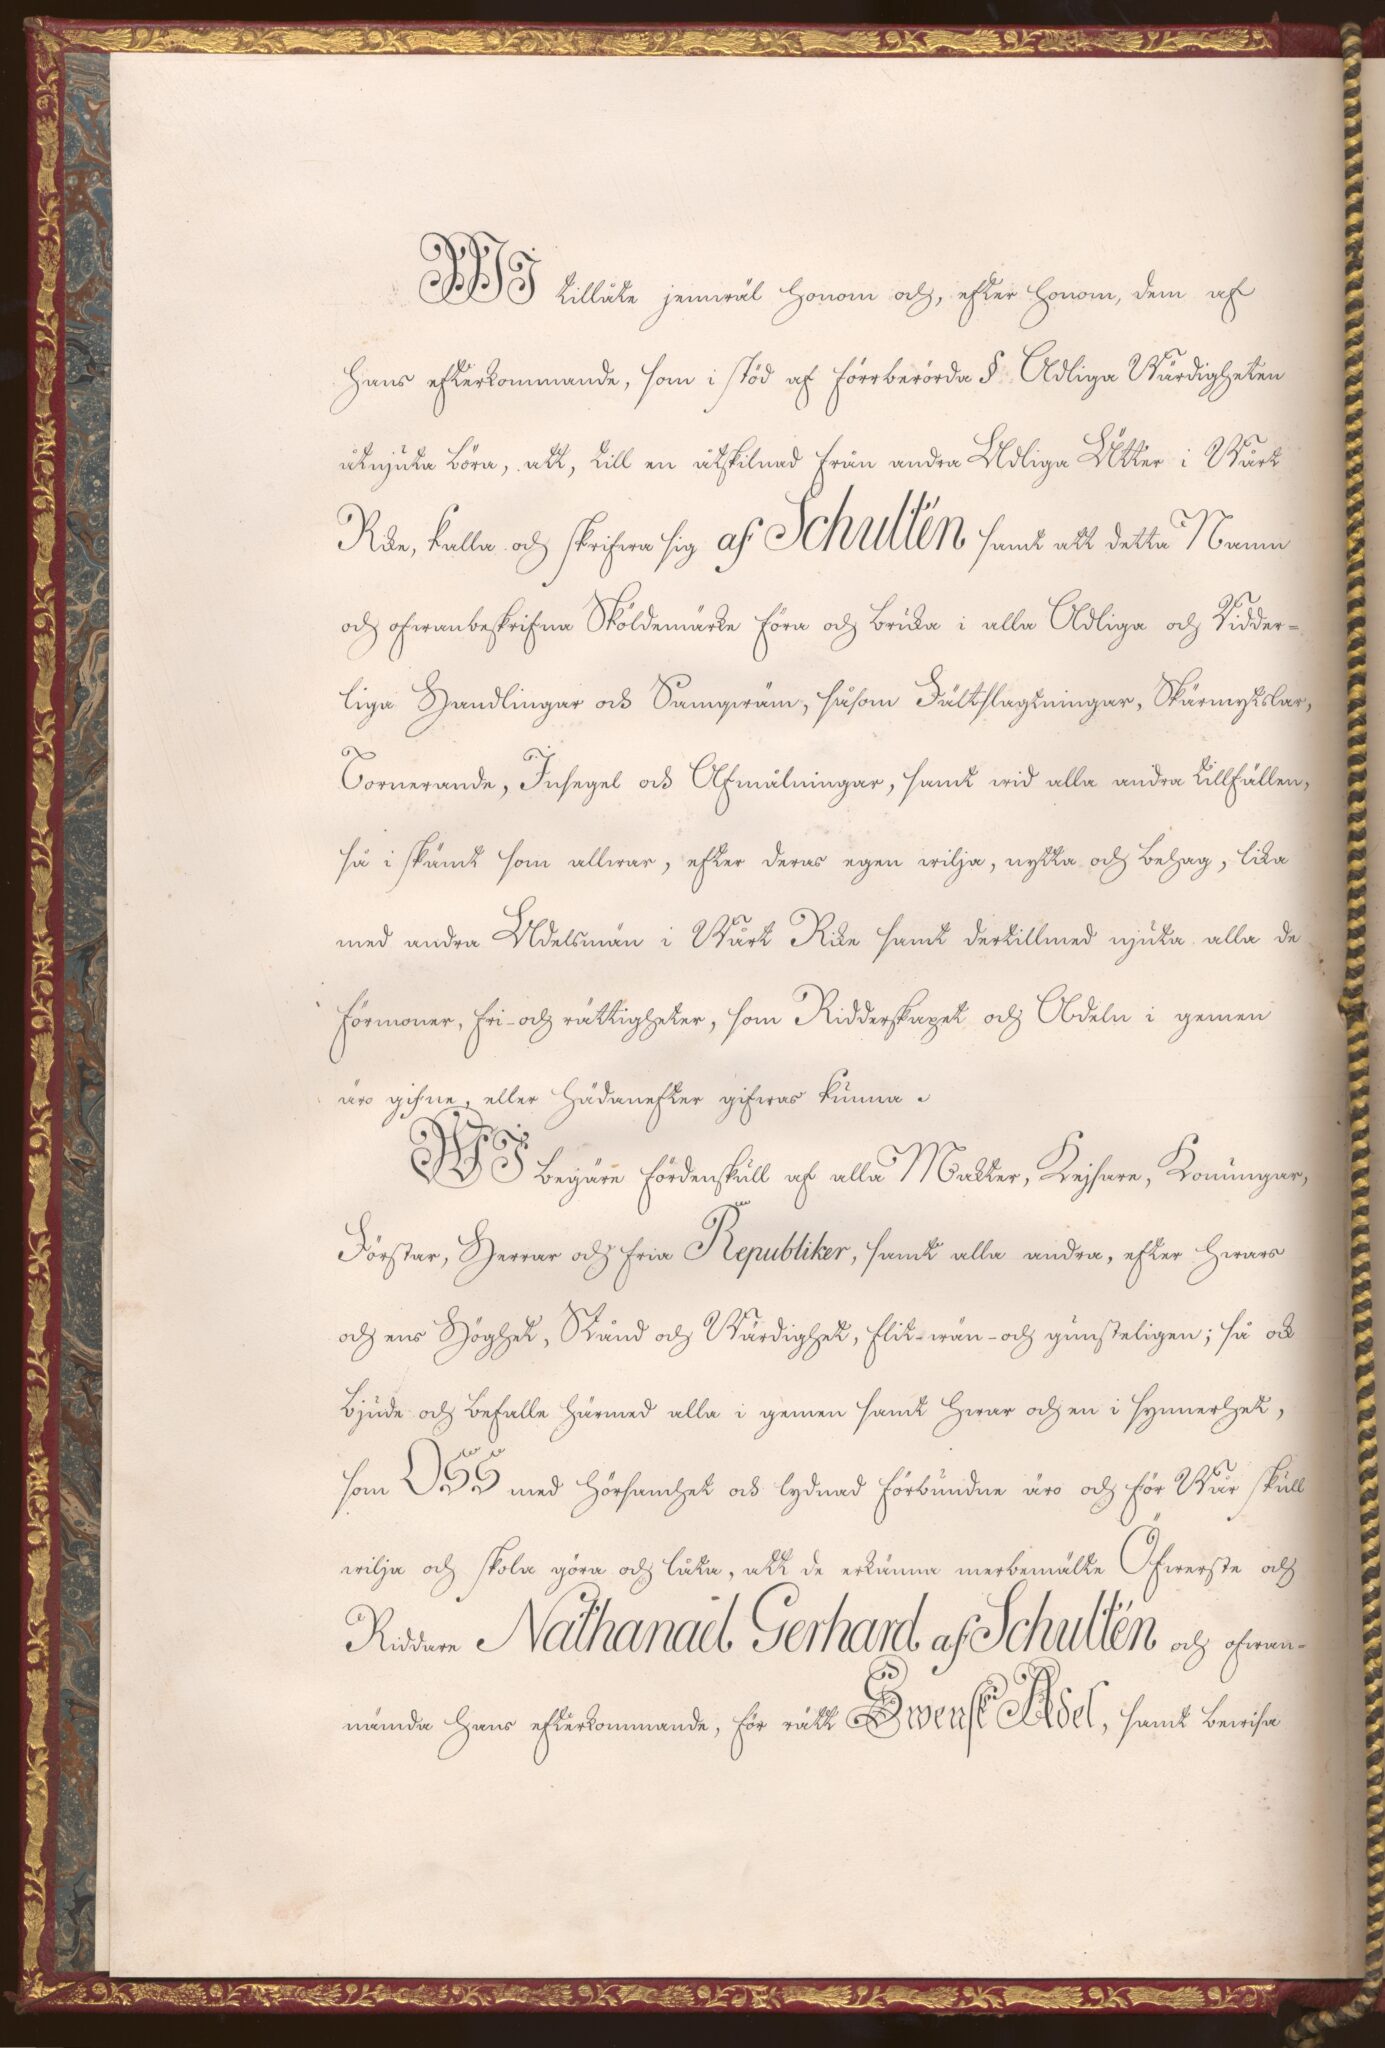 WI tillåte jemwäl honom och, efter honom, dem af
hans efterkommande, som i stöd af förrberörda § Adliga Wärdigheten
åtnjuta böra, att, till en åtskilnad från andra Adliga Ätter i Wårt
Rike, kalla och skrifwa sig af Schultén samt att detta Namn
och ofwanbeskrifna Sköldemärke föra och bruka i alla Adliga och Ridder-
liga Handlingar ock Samqwäm, såsom Fältslagtningar, Skärmytslar,
Tornerande, Insegel ock Afmålningar, samt wid alla andra tillfällen,
så i skämt som allwar, efter deras egen wilja, nytta och behag, lika
med andra Adelsmän i Wårt Rike samt dertillmed njuta alla de
förmoner, fri- och rättigheter, som Ridderskapet och Adeln i gemen
äro gifne, eller hädanefter gifwas kunna.
WI begäre fördenskull af alla Makter, Kejsare, Konungar,
Förstar, Herrar och fria Republiker, samt alla andra, efter hwars
och ens Höghet, Stånd och Wärdighet, flit- wän- och gunsteligen; så ock
bjude och befalle härmed alla i gemen samt hwar och en i synnerhet,
som OSS med hörsamhet ock lydnad förbundne äro och för Wår skull
wilja och skola göra och låta, att de erkänna merbemälte Öfwerste och
Riddare Nathanaël Gerhard af Schultén och ofwan-
nämda hans efterkommande, för rätt Swensk Adel, samt bewisa